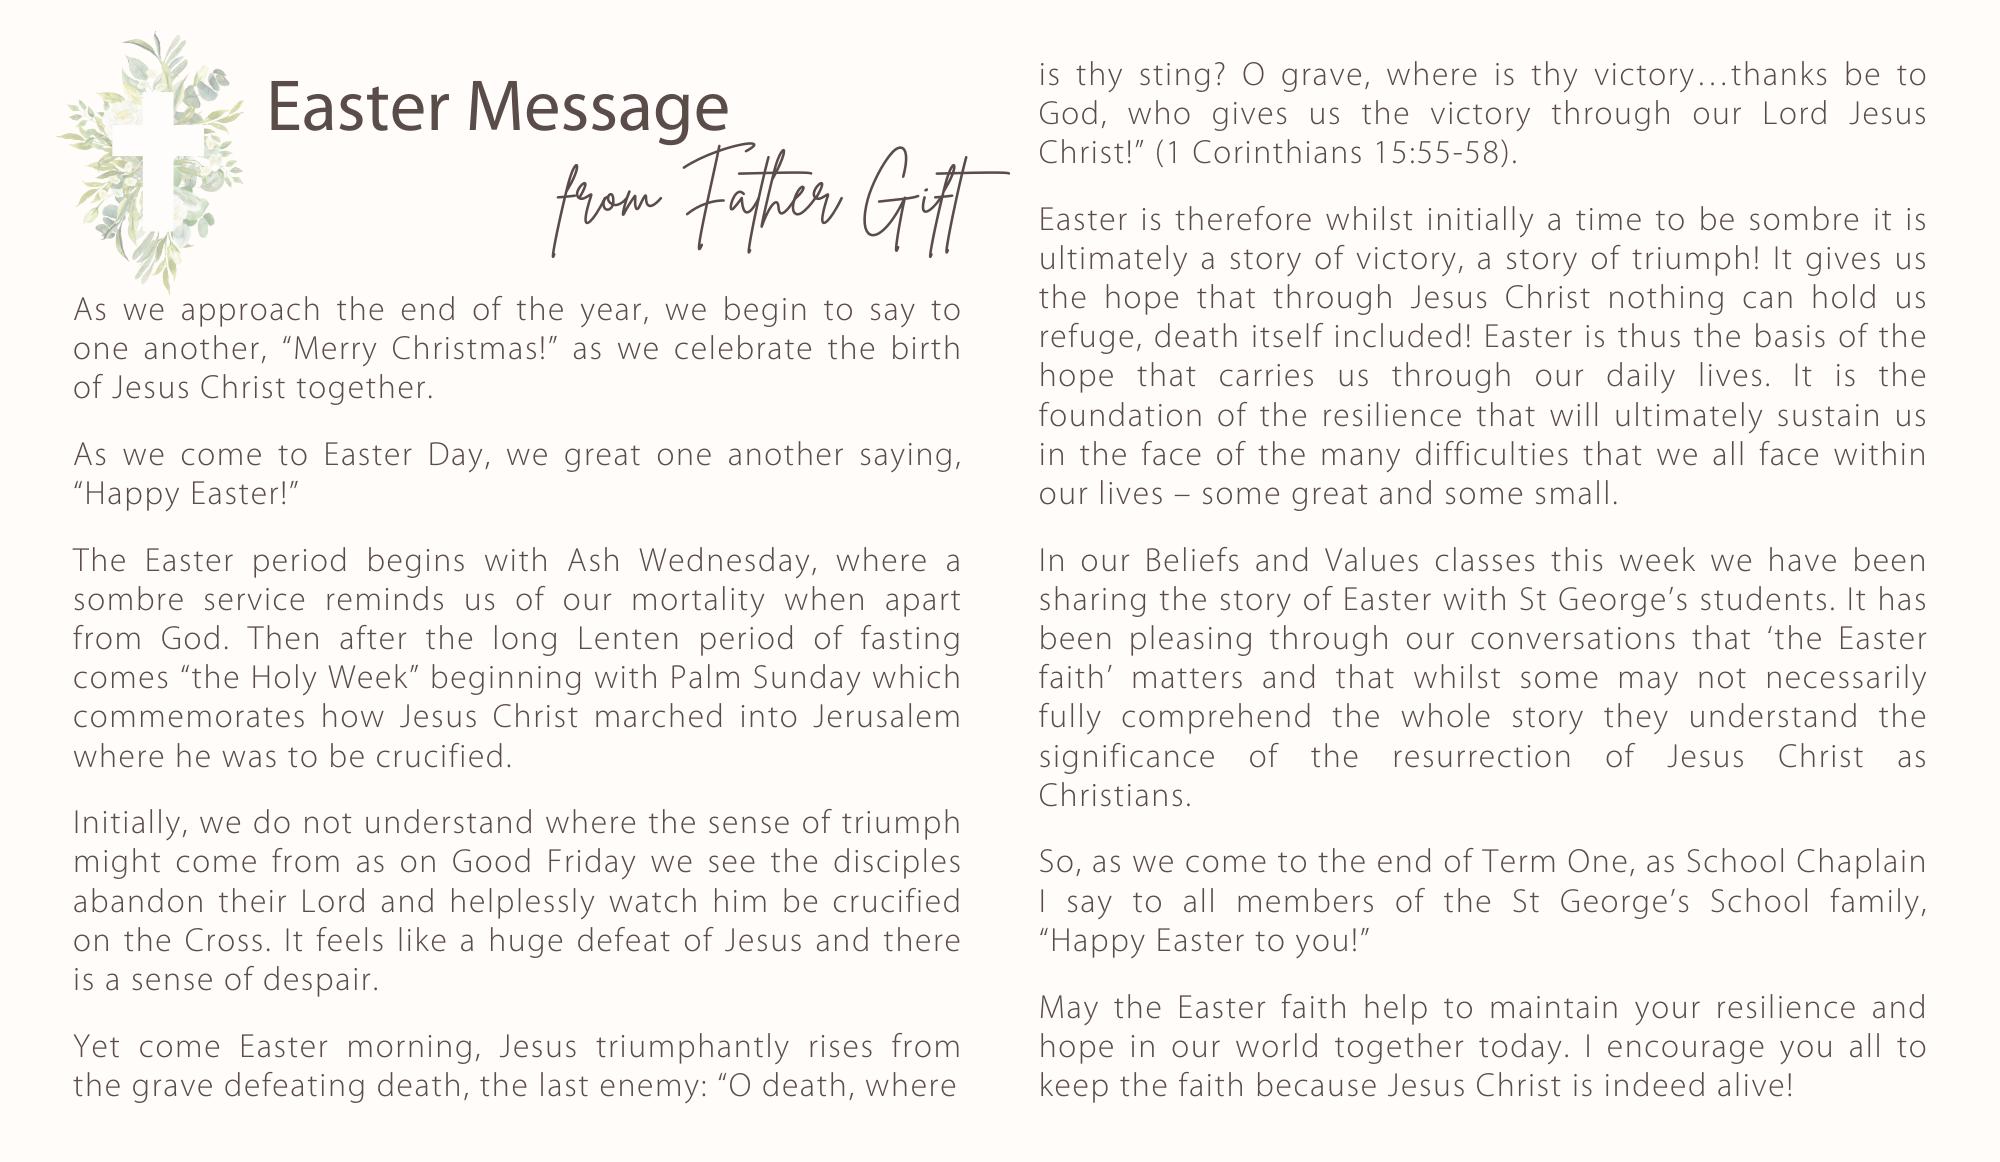 Easter Message
from Father Gift
As we approach the end of the year, we begin to say to
one another, “Merry Christmas!” as we celebrate the birth
of Jesus Christ together.
As we come to Easter Day, we great one another saying,
“Happy Easter!”
The Easter period begins with Ash Wednesday, where a
sombre service reminds us of our mortality when apart
from God. Then after the long Lenten period of fasting
comes “the Holy Week” beginning with Palm Sunday which
commemorates how Jesus Christ marched into Jerusalem
where he was to be crucified.
Initially, we do not understand where the sense of triumph
might come from as on Good Friday we see the disciples
abandon their Lord and helplessly watch him be crucified
on the Cross. It feels like a huge defeat of Jesus and there
is a sense of despair.
Yet come Easter morning, Jesus triumphantly rises from
the grave defeating death, the last enemy: “O death, where
is thy sting? O grave, where is thy victory…thanks be to
God, who gives us the victory through our Lord Jesus
Christ!” (1 Corinthians 15:55-58).
Easter is therefore whilst initially a time to be sombre it is
ultimately a story of victory, a story of triumph! It gives us
the hope that through Jesus Christ nothing can hold us
refuge, death itself included! Easter is thus the basis of the
hope that carries us through our daily lives. It is the
foundation of the resilience that will ultimately sustain us
in the face of the many difficulties that we all face within
our lives – some great and some small.
In our Beliefs and Values classes this week we have been
sharing the story of Easter with St George’s students. It has
been pleasing through our conversations that ‘the Easter
faith’ matters and that whilst some may not necessarily
fully comprehend the whole story they understand the
significance of the resurrection of Jesus Christ as
Christians.
So, as we come to the end of Term One, as School Chaplain
I say to all members of the St George’s School family,
“Happy Easter to you!”
May the Easter faith help to maintain your resilience and
hope in our world together today. I encourage you all to
keep the faith because Jesus Christ is indeed alive!